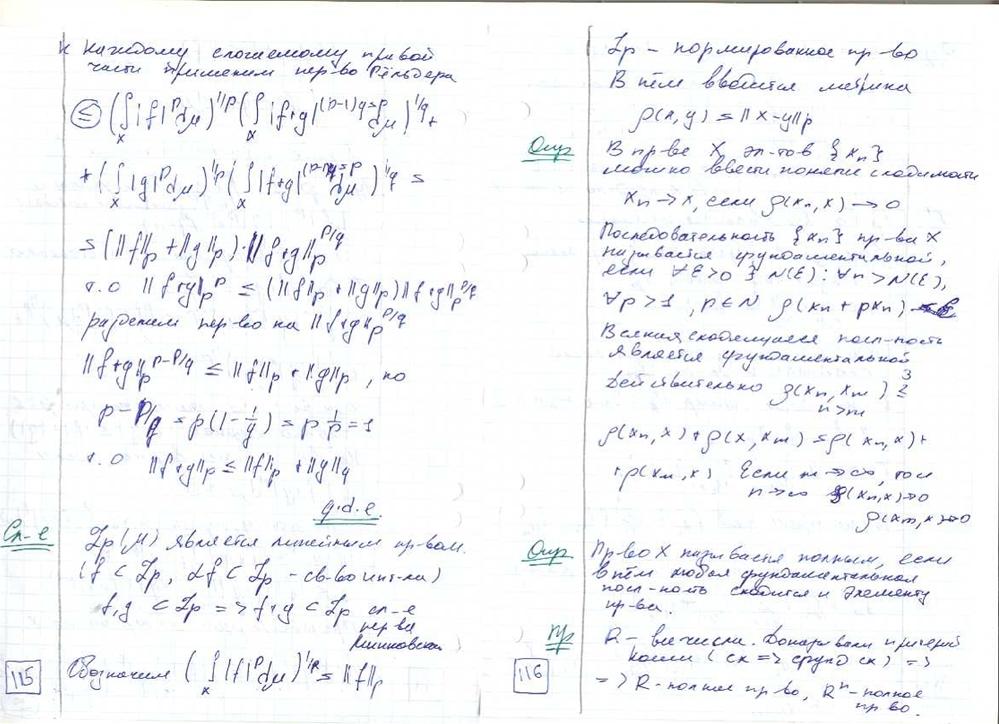 к каждому слогаемому правой
части применим нер-во Гёльдера
≤ (∫_X |f|^p dμ)^{1/p} (∫_X |f+g|^{(p-1)q=p} dμ)^{1/q} +
+ (∫_X |g|^p dμ)^{1/p} (∫_X |f+g|^{(p-1)q=p} dμ)^{1/q} =
= (‖f‖_p + ‖g‖_p)·‖f+g‖_p^{p/q}
т.о ‖f+g‖_p^p ≤ (‖f‖_p + ‖g‖_p)‖f+g‖_p^{p/q}
разделим нер-во на ‖f+g‖_p^{p/q}
‖f+g‖_p^{p-p/q} ≤ ‖f‖_p + ‖g‖_p, но
p - p/q = p(1 - 1/q) = p 1/p = 1
т.о ‖f+g‖_p ≤ ‖f‖_p + ‖g‖_q
q.d.e.
Сл-е L_p(μ) является линейным пр-вом.
(f ⊂ L_p, αf ⊂ L_p - св-во инт-ла)
f,g ⊂ L_p => f+g ⊂ L_p сл-е
нер-ва
Минковского
Обозначим (∫_X |f|^p dμ)^{1/p} = ‖f‖_p
115
L_p - нормированное пр-во
В нём вводится метрика
ρ(x,y) = ‖x-y‖_p
Опр В пр-ве X эл-тов {x_n}
можно ввести понятие сходимости
x_n → x, если ρ(x_n,x) → 0
Последовательность {x_n} пр-ва X
называется фундаментальной,
если ∀ε>0 ∃ N(ε): ∀n > N(ε),
∀p > 1, p ∈ N ρ(x_n + p x_n)
Всякая сходящаяся посл-ность
является фундаментальной
Действительно ρ(x_n, x_m) ≤
n>m
ρ(x_n, x) + ρ(x, x_m) = ρ(x_n, x) +
+ρ(x_m, x) Если m → ∞, то
n → ∞ ρ(x_n,x) → 0
ρ(x_m,x) → 0
Опр Пр-во X называется полным, если
в нём любая фундаментальная
посл-ность сходится к элементу
пр-ва.
Пр R - все числа. Доказывали критерий
Коши (сх => фунд сх) =>
=> R - полное пр-во, R^n - полное
пр-во.
116